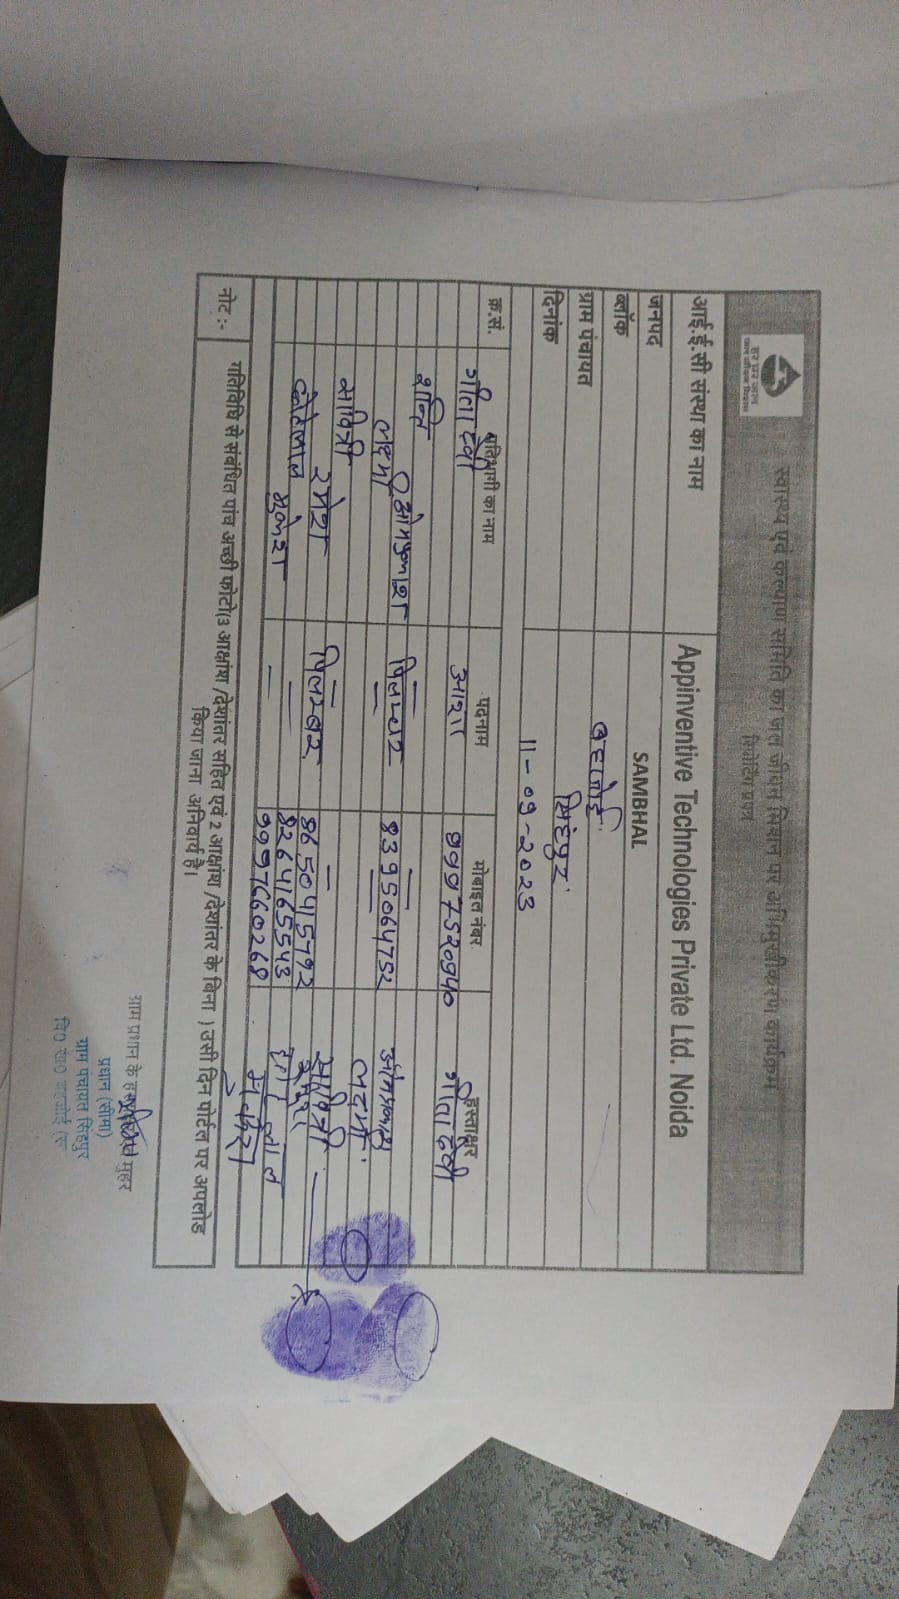 स्वास्थ्य एवं कल्याण समिति का जल जीवन मिशन पर अभिमुखीकरण कार्यक्रम
रिपोर्टिंग प्रपत्र
हर घर जल
जल जीवन मिशन
आई.ई.सी संस्था का नाम Appinventive Technologies Private Ltd. Noida
जनपद SAMBHAL
ब्लॉक
ग्राम पंचायत सिंहपुर
दिनांक 11-09-2023
क्र.सं. प्रतिभागी का नाम पदनाम मोबाइल नंबर हस्ताक्षर
गीता देवी आशा गीता देवी
शान्ति — —
ओमप्रकाश 8395064752 ओमप्रकाश
लक्ष्मी — — लक्ष्मी
सावित्री — — सावित्री
रमेश 8650415792
8264165543
— 9997660268
नोट :- गतिविधि से संबंधित पांच अच्छी फोटो(3 आक्षांश /देशांतर सहित एवं 2 आक्षांश /देशांतर के बिना ) उसी दिन पोर्टल पर अपलोड
किया जाना अनिवार्य है।
ग्राम प्रधान के मुहर
प्रधान (सीमा)
ग्राम पंचायत सिंहपुर